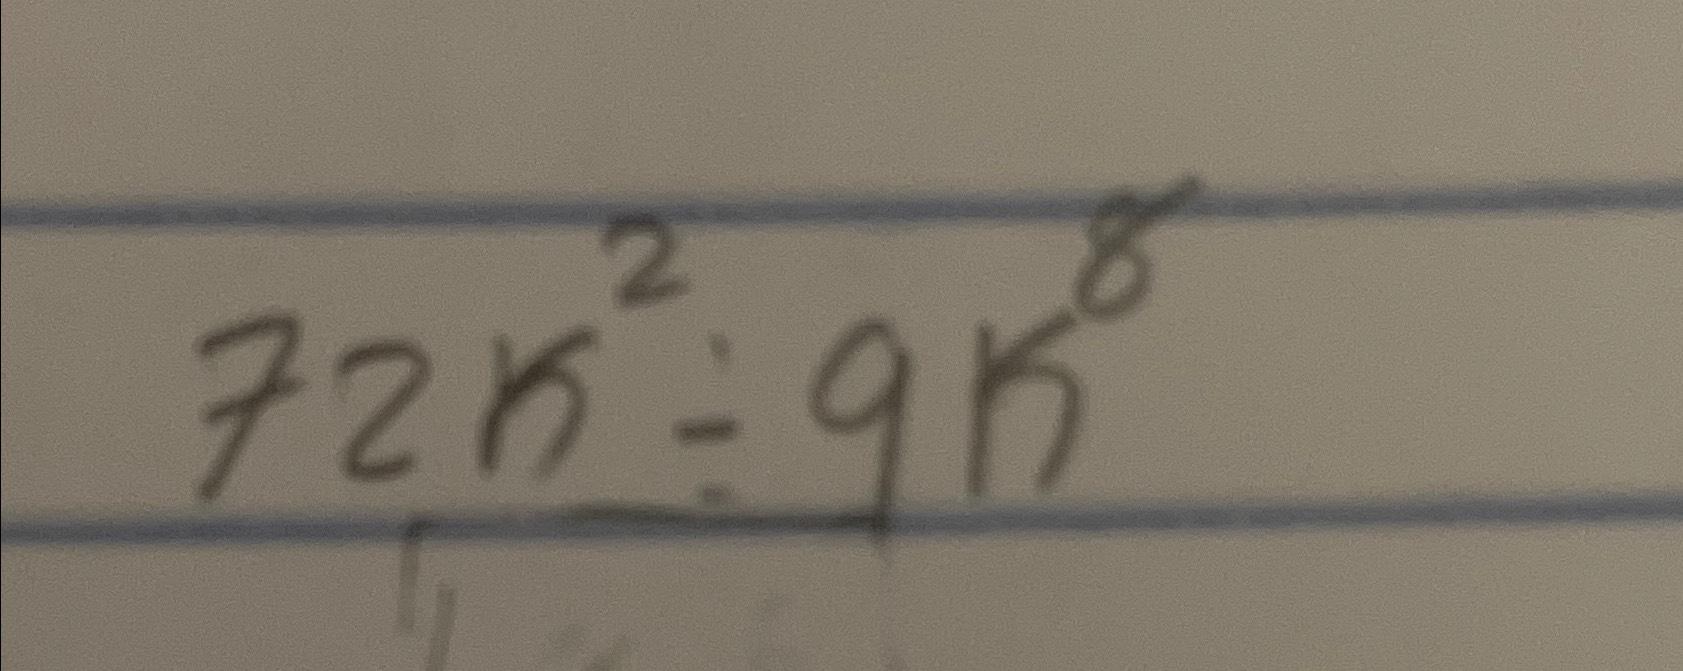 72n² ÷ 9n⁸